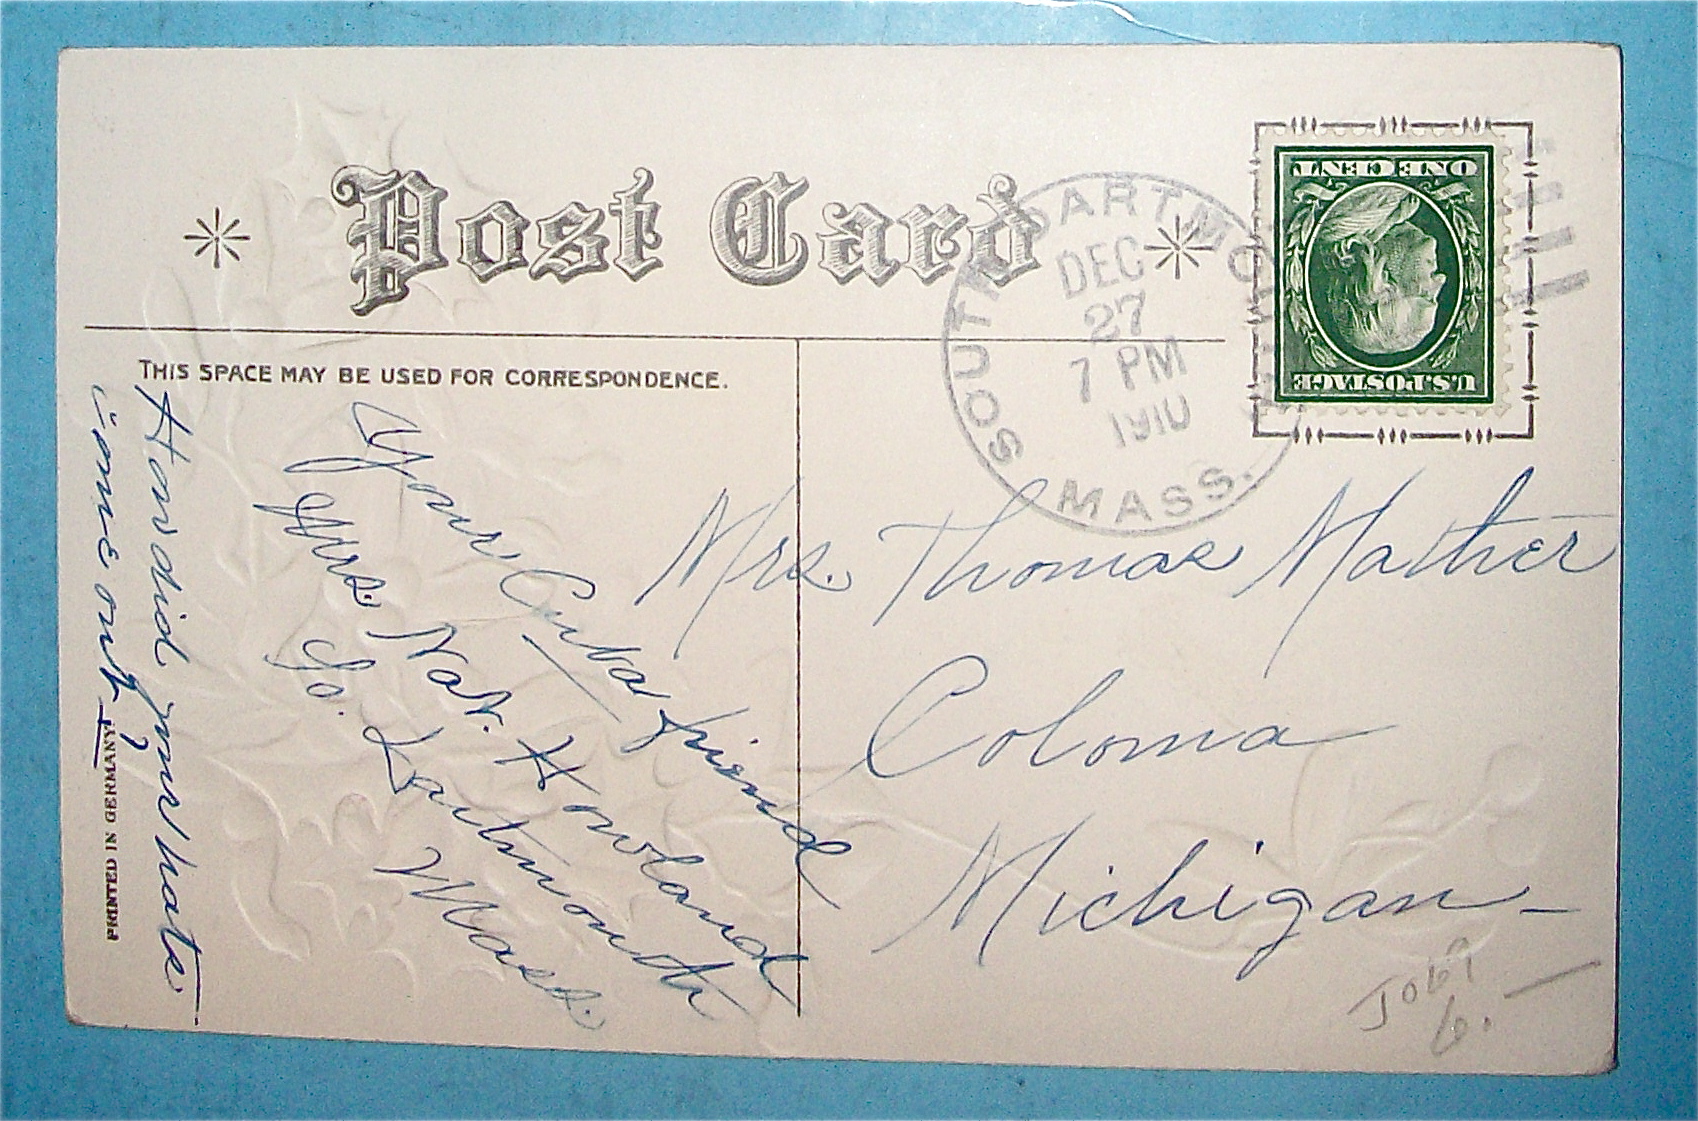 Post Card
SOUTH DARTMOUTH
DEC
27
7 PM
1910
MASS.
ONE CENT
U.S. POSTAGE
THIS SPACE MAY BE USED FOR CORRESPONDENCE.
How did your hats
come out?
Your Cuba friend
Mrs. Nat. Howland
So. Dartmouth
Mass.
Mrs. Thomas Mather
Coloma
Michigan
PRINTED IN GERMANY
6.